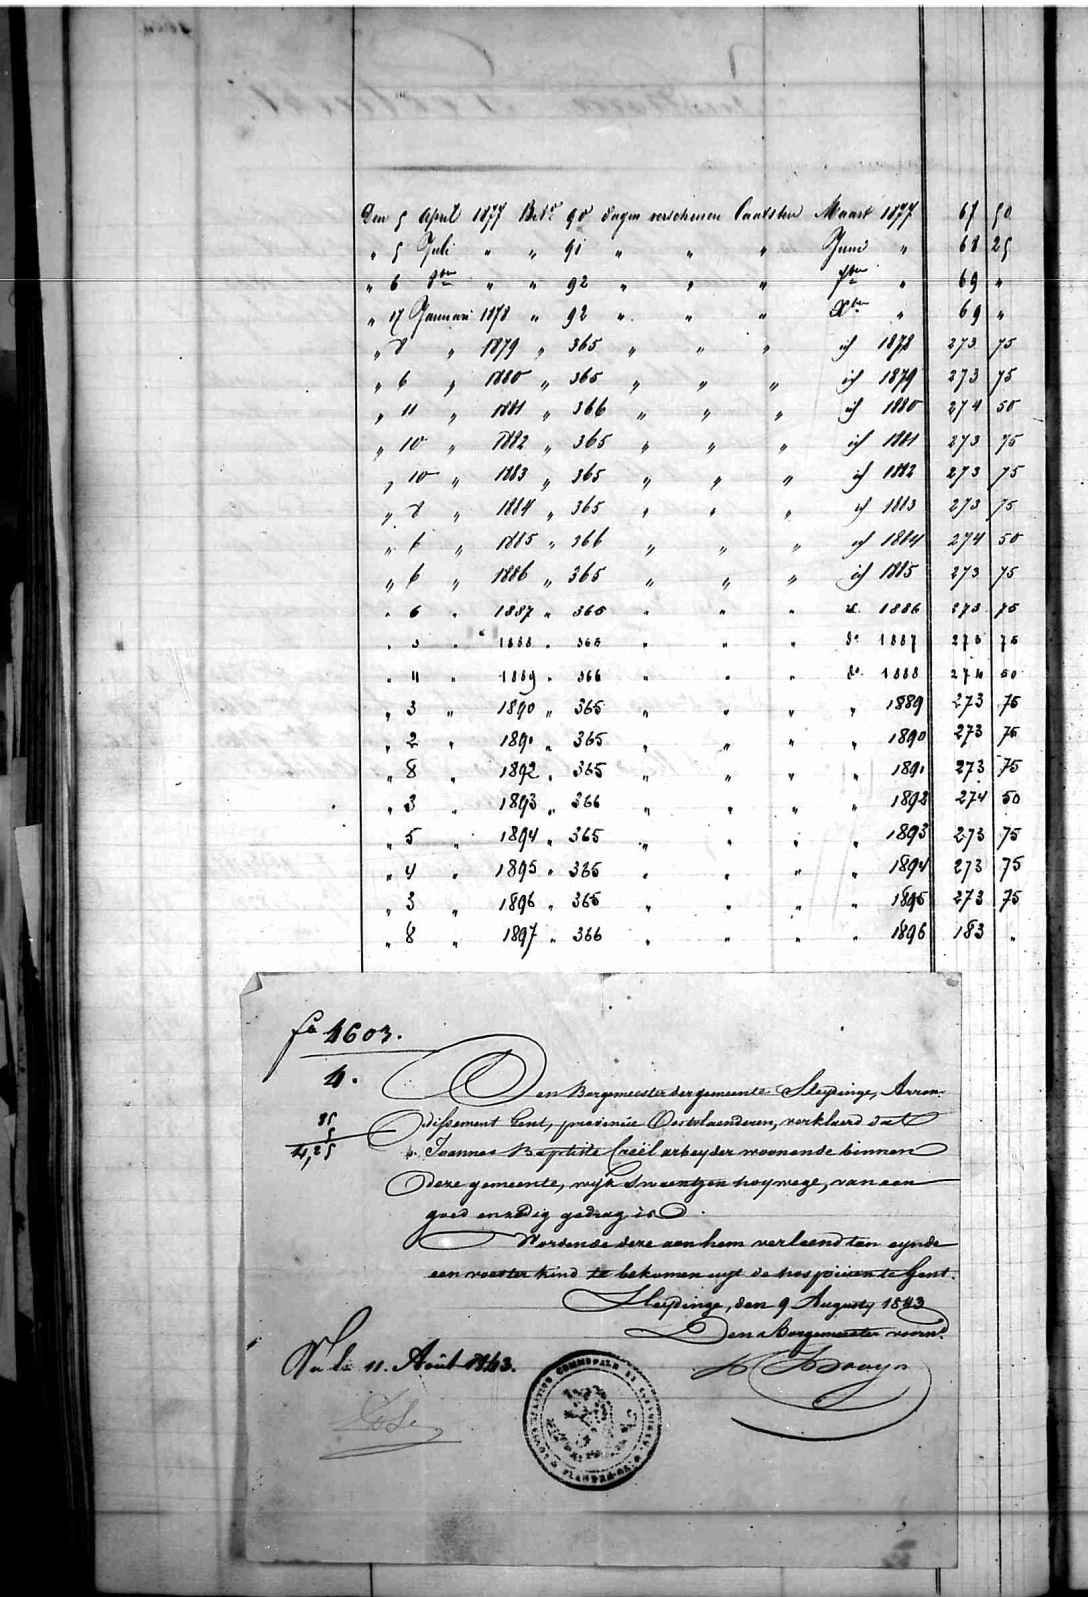 Den 5 April 1877 Betd 90 dagen verschenen laatsten Maart 1877 67 50
" 5 Juli " " 91 " " " Juni " 68 25
" 6 8bre " " 92 " " " 7bre " 69 "
" 17 Januari 1878 " 92 " " " Xbre " 69 "
" 8 " 1879 " 365 " " " id 1878 273 75
" 6 " 1880 " 365 " " " id 1879 273 75
" 11 " 1881 " 366 " " " id 1880 274 50
" 10 " 1882 " 365 " " " id 1881 273 75
" 10 " 1883 " 365 " " " id 1882 273 75
" 8 " 1884 " 365 " " " id 1883 273 75
" " 1885 " 366 " " " id 1884 274 50
" 6 " 1886 " 365 " " " id 1885 273 75
" 6 " 1887 " 365 " " " 1886 273 75
" 5 " 1888 " 365 " " " do 1887 273 75
" 11 " 1889 " 366 " " " do 1888 274 50
" 3 " 1890 " 365 " " " " 1889 273 75
" 2 " 1891 " 365 " " " " 1890 273 75
" 8 " 1892 " 365 " " " " 1891 273 75
" 3 " 1893 " 366 " " " " 1892 274 50
" 5 " 1894 " 365 " " " " 1893 273 75
" 4 " 1895 " 365 " " " " 1894 273 75
" 3 " 1896 " 365 " " " " 1895 273 75
" 8 " 1897 " 366 " " " " 1896 183 "
fo 4603.
4.
Den Borgemeester der gemeente Sleydinge, Arron-
dissement Gent, provincie Oostvlaenderen, verklaerd dat
Joannes Baptiste Creël arbeyder woonende binnen
deze gemeente, wyk Swaentjen hoywege, van een
goed en zedig gedrag is.
Wordende deze aen hem verleend ten eynde
een voester kind te bekomen uyt de hospicien te Gent.
Sleydinge, den 9 Augusty 1843
Den Borgemeester voornd.
Vu le 11. Août 1843.